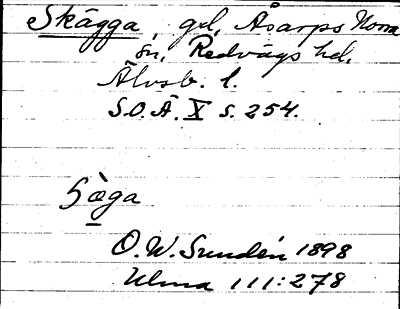 Skägga, gd, Åsarps Norra
sn, Redvägs hd.
Älvsb. l.
S.O.Ä. X s. 254.
Säga
O. W. Sundén 1898
Ulma 111:278